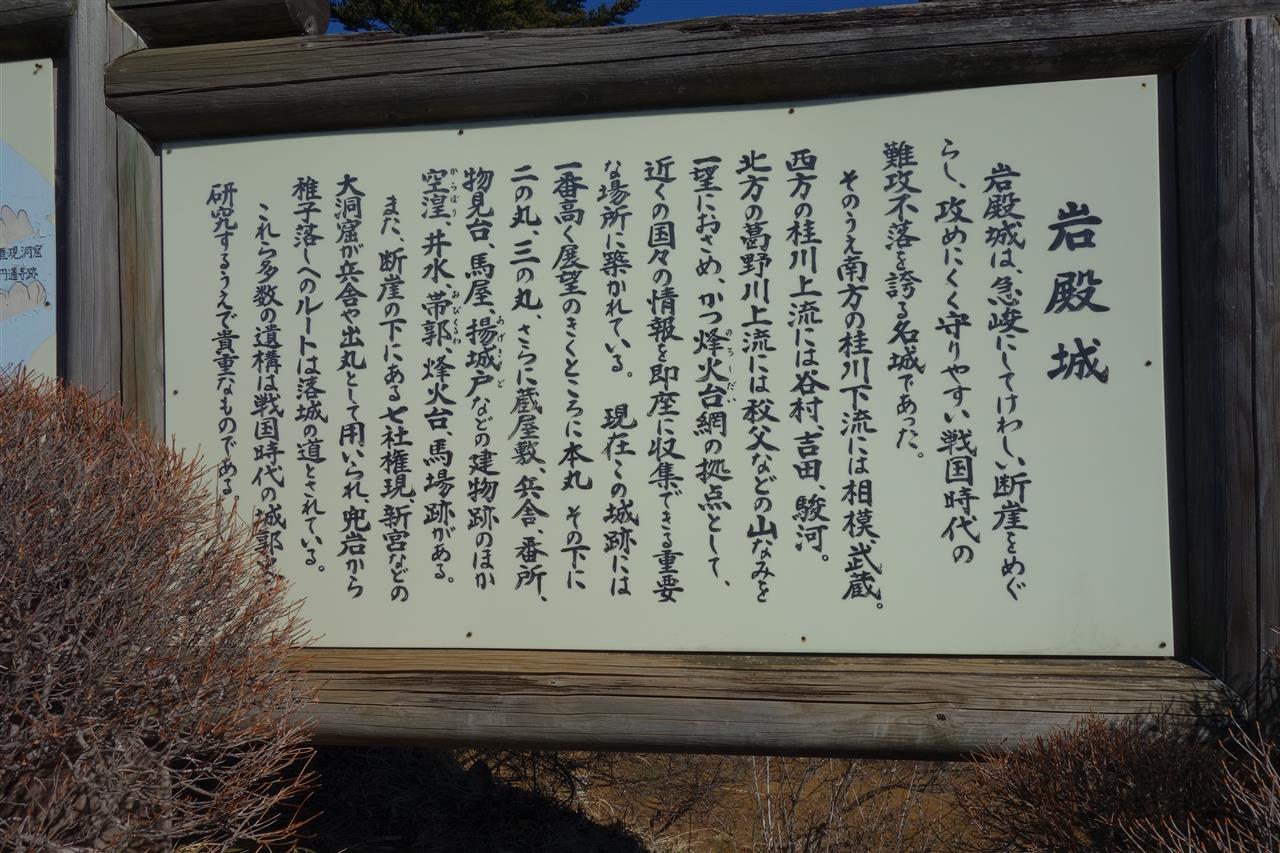 岩殿城
岩殿城は、急峻にしてけわしい断崖をめぐ
らし、攻めにくく守りやすい戦国時代の
難攻不落を誇る名城であった。
そのうえ南方の桂川下流には相模、武蔵。
西方の桂川上流には谷村、吉田、駿河。
北方の葛野川上流には秩父などの山なみを
一望におさめ、かつ烽火台網の拠点として、
のろしだい
近くの国々の情報を即座に収集できる重要
な場所に築かれている。 現在この城跡には
一番高く展望のきくところに本丸 その下に
二の丸、三の丸、さらに蔵屋敷、兵舎、番所、
物見台、馬屋、揚城戸などの建物跡のほか
あげきど
空湟、井水、帯郭、烽火台、馬場跡がある。
からぼり
おびくるわ
また、断崖の下にある七社権現、新宮などの
大洞窟が兵舎や出丸として用いられ、兜岩から
稚子落しへのルートは落城の道とされている。
これら多数の遺構は戦国時代の城郭
研究するうえで貴重なものである。
権現洞窟
円通寺跡